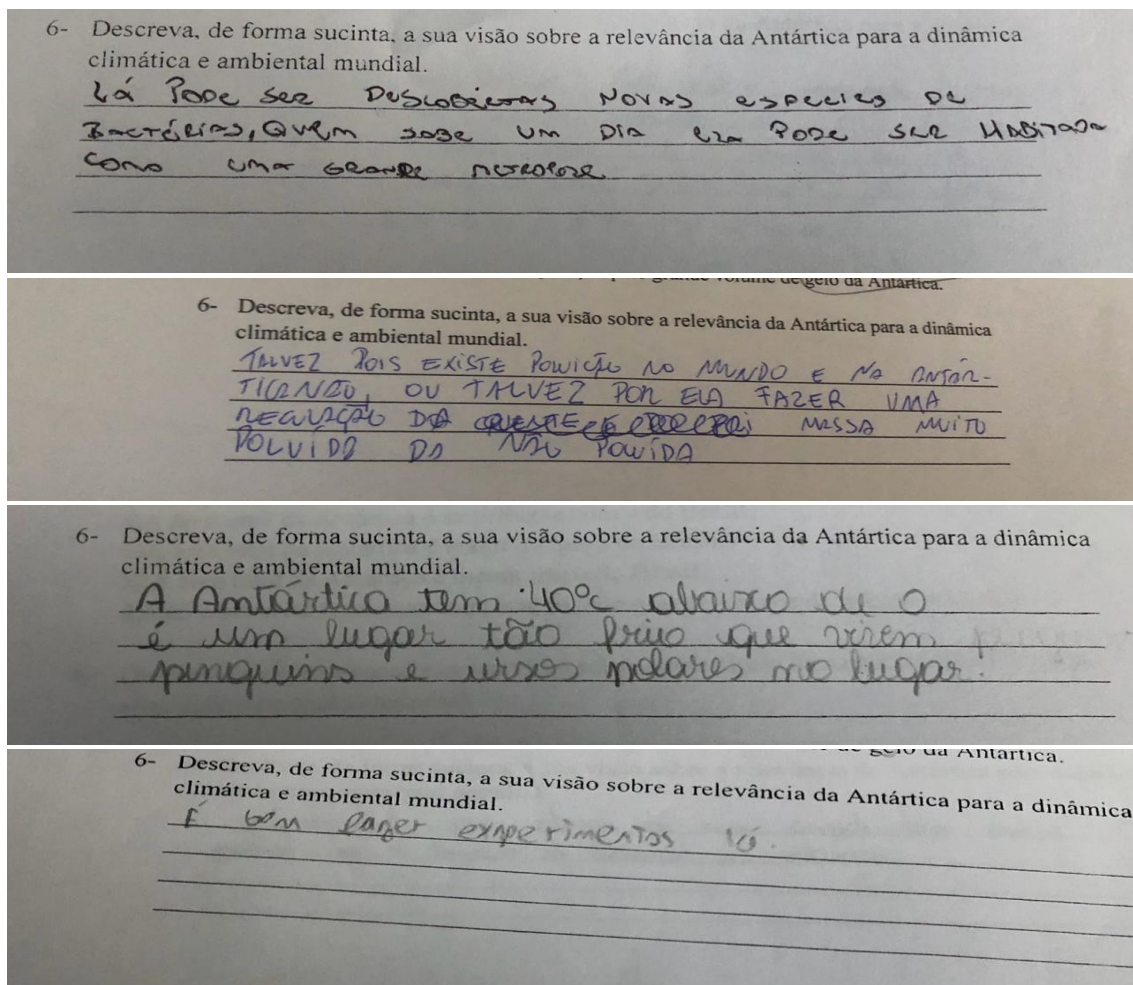 6- Descreva, de forma sucinta, a sua visão sobre a relevância da Antártica para a dinâmica
climática e ambiental mundial.
Lá Pode ser Descobertas Novas especies de
Bactérias, Quem sabe um dia ela Pode ser Habitada
Como uma grande metropole
volume de gelo da Antártica.
6- Descreva, de forma sucinta, a sua visão sobre a relevância da Antártica para a dinâmica
climática e ambiental mundial.
TALVEZ POIS EXISTE POLUIÇÃO NO MUNDO E NA ANTÁR-
TICA NÃO, OU TALVEZ POR ELA FAZER UMA
REGULAÇÃO DA MASSA MUITO
POLUÍDA DA NÃO POLUÍDA
6- Descreva, de forma sucinta, a sua visão sobre a relevância da Antártica para a dinâmica
climática e ambiental mundial.
A Antártica tem 40°c abaixo de 0
é um lugar tão friio que vivem
pinguins e ursos polares no lugar.
de gelo da Antártica.
6- Descreva, de forma sucinta, a sua visão sobre a relevância da Antártica para a dinâmica
climática e ambiental mundial.
É bom fazer experimentos lá.